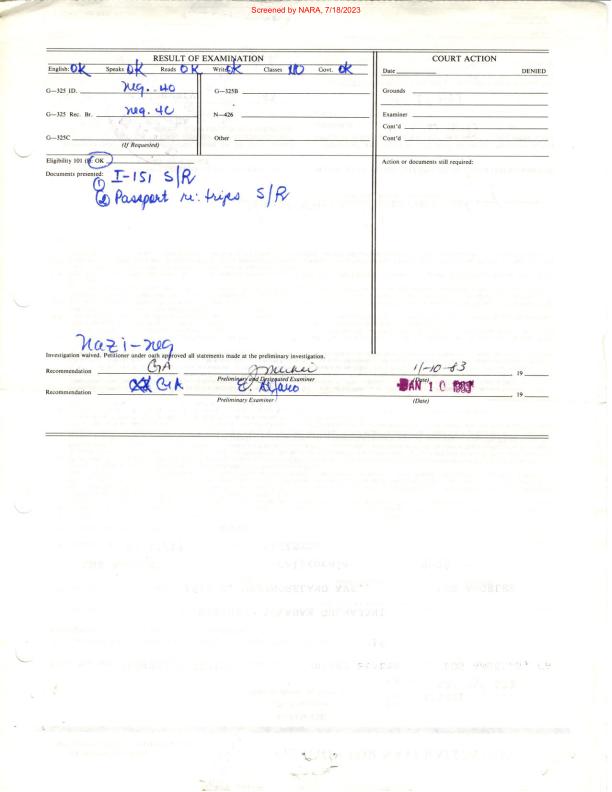 Screened by NARA, 7/18/2023
RESULT OF EXAMINATION
English: OK Speaks OK Reads OK Write OK Classes NO Govt. OK
G—325 ID. neg. 40 G—325B
G—325 Rec. Br. neg. 40 N—426
G—325C Other
(If Requested)
Eligibility 101 (f) OK
Documents presented:
① I-151 S/R
② Passport re: trips S/R
COURT ACTION
Date DENIED
Grounds
Examiner
Cont'd
Cont'd
Action or documents still required:
Nazi-neg
Investigation waived. Petitioner under oath approved all statements made at the preliminary investigation.
Recommendation GA 11-10-83 19
Preliminary and Designated Examiner (Date)
Recommendation GA E. Alfaro JAN 10 1983 19
Preliminary Examiner (Date)